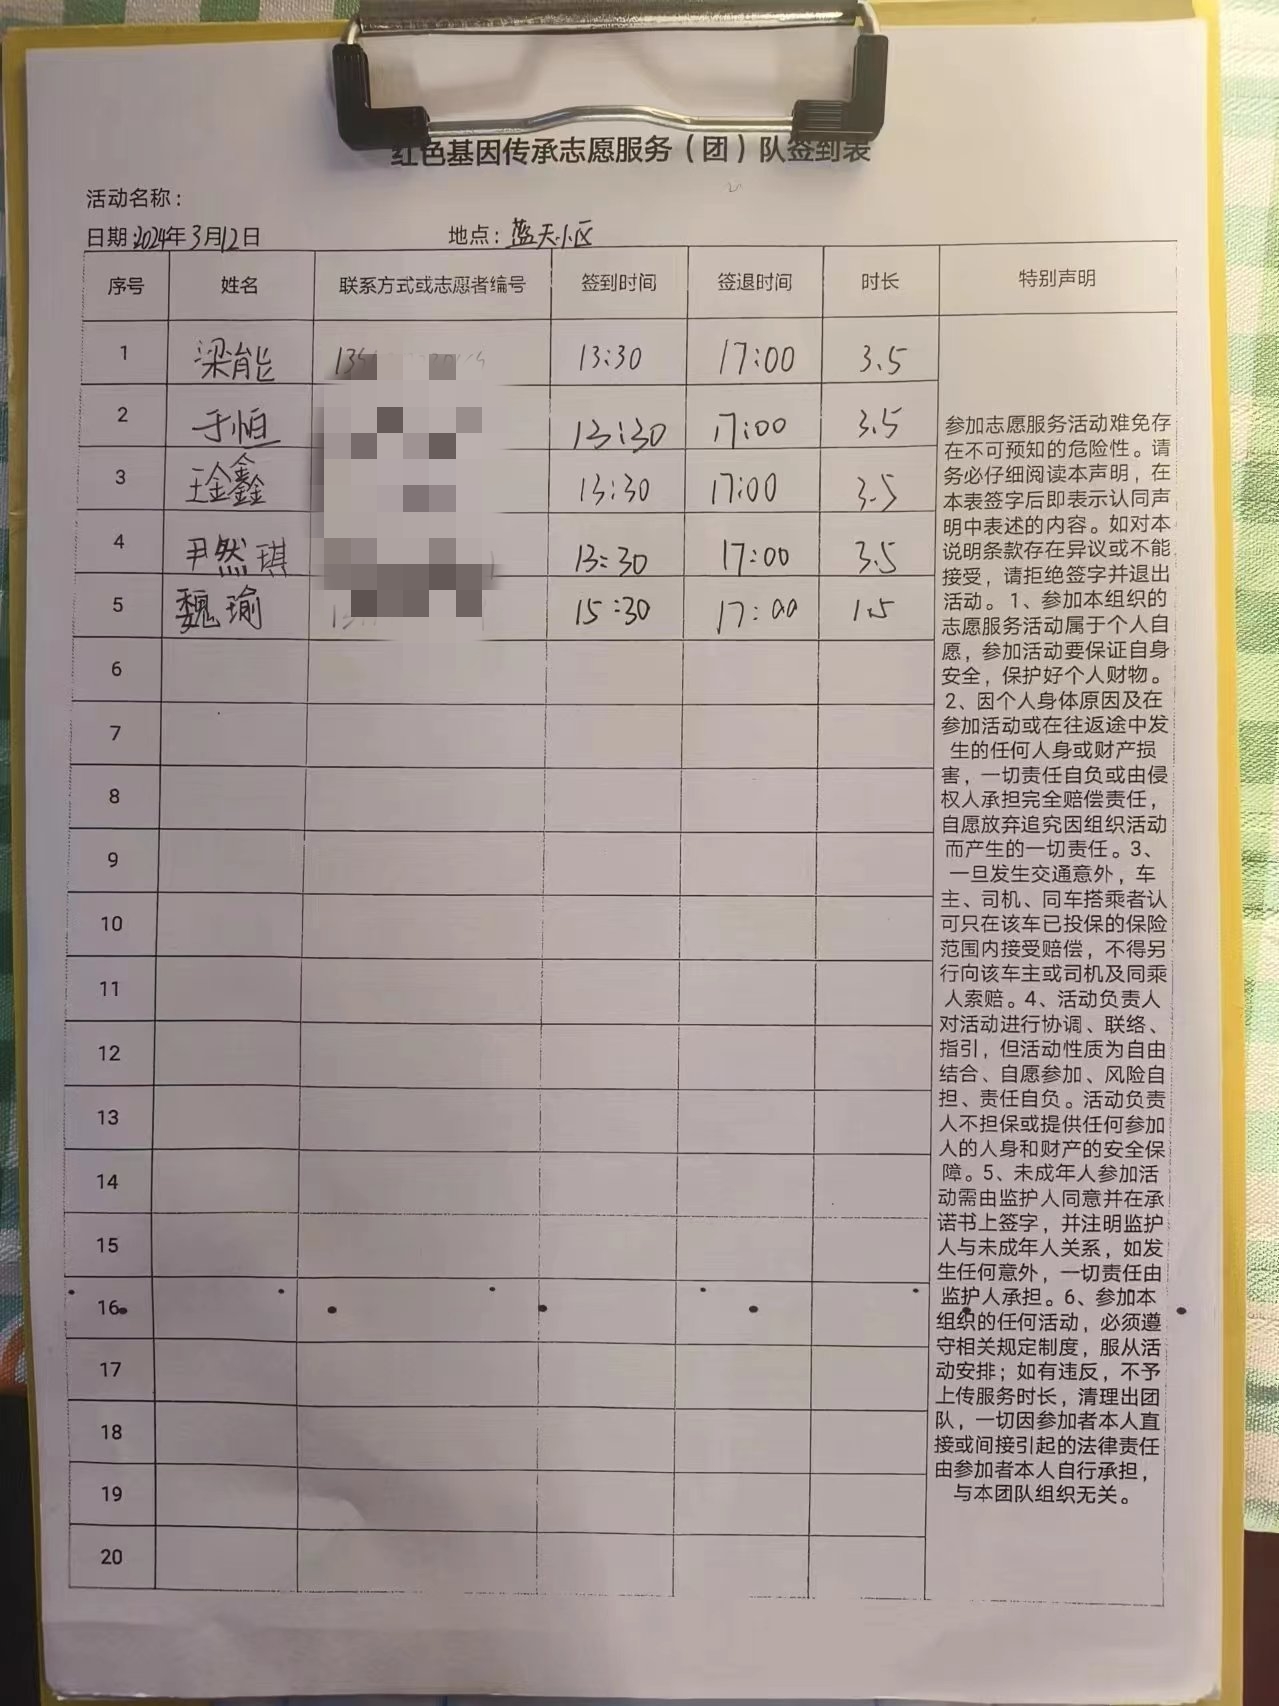 红色基因传承志愿服务（团）队签到表
活动名称：
日期:2024年3月12日 地点：蓝天小区
序号 姓名 联系方式或志愿者编号 签到时间 签退时间 时长 特别声明
1 梁能 13:30 17:00 3.5
2 于恒 13:30 17:00 3.5
3 王金鑫 13:30 17:00 3.5
4 尹然琪 13:30 17:00 3.5
5 魏瑜 15:30 17:00 1.5
6
7
8
9
10
11
12
13
14
15
16
17
18
19
20
参加志愿服务活动难免存
在不可预知的危险性。请
务必仔细阅读本声明，在
本表签字后即表示认同声
明中表述的内容。如对本
说明条款存在异议或不能
接受，请拒绝签字并退出
活动。1、参加本组织的
志愿服务活动属于个人自
愿，参加活动要保证自身
安全，保护好个人财物。
2、因个人身体原因及在
参加活动或在往返途中发
生的任何人身或财产损
害，一切责任自负或由侵
权人承担完全赔偿责任，
自愿放弃追究因组织活动
而产生的一切责任。3、
一旦发生交通意外，车
主、司机、同车搭乘者认
可只在该车已投保的保险
范围内接受赔偿，不得另
行向该车主或司机及同乘
人索赔。4、活动负责人
对活动进行协调、联络、
指引，但活动性质为自由
结合、自愿参加、风险自
担、责任自负。活动负责
人不担保或提供任何参加
人的人身和财产的安全保
障。5、未成年人参加活
动需由监护人同意并在承
诺书上签字，并注明监护
人与未成年人关系，如发
生任何意外，一切责任由
监护人承担。6、参加本
组织的任何活动，必须遵
守相关规定制度，服从活
动安排；如有违反，不予
上传服务时长，清理出团
队，一切因参加者本人直
接或间接引起的法律责任
由参加者本人自行承担，
与本团队组织无关。